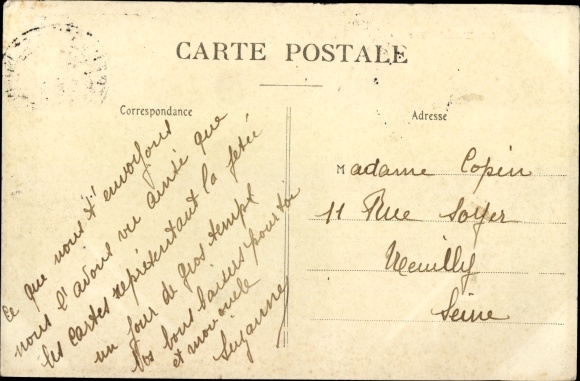 CARTE POSTALE
Correspondance
Adresse
Ce que nous t'envoyons
nous l'avons vu ainsi que
les cartes représentant la jetée
un jour de gros temps
Vos bons baisers pour toi
et mon oncle
Suzanne
Madame Copin
11 Rue Soyer
Neuilly
Seine